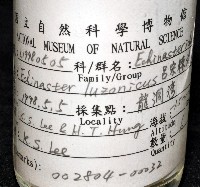 國立自然科學博物館
NATIONAL MUSEUM OF NATURAL SCIENCE
19980505 科/群名: Echinaster
Family/Group
Echinaster luzonicus 呂宋棘海星
1998.5.5 採集點: 龍洞灣
Locality 海拔:
Altitude
K.S. Lee & H.T. Hung 數量:
Quantity
K.S. Lee
(Remarks): 002804-00032